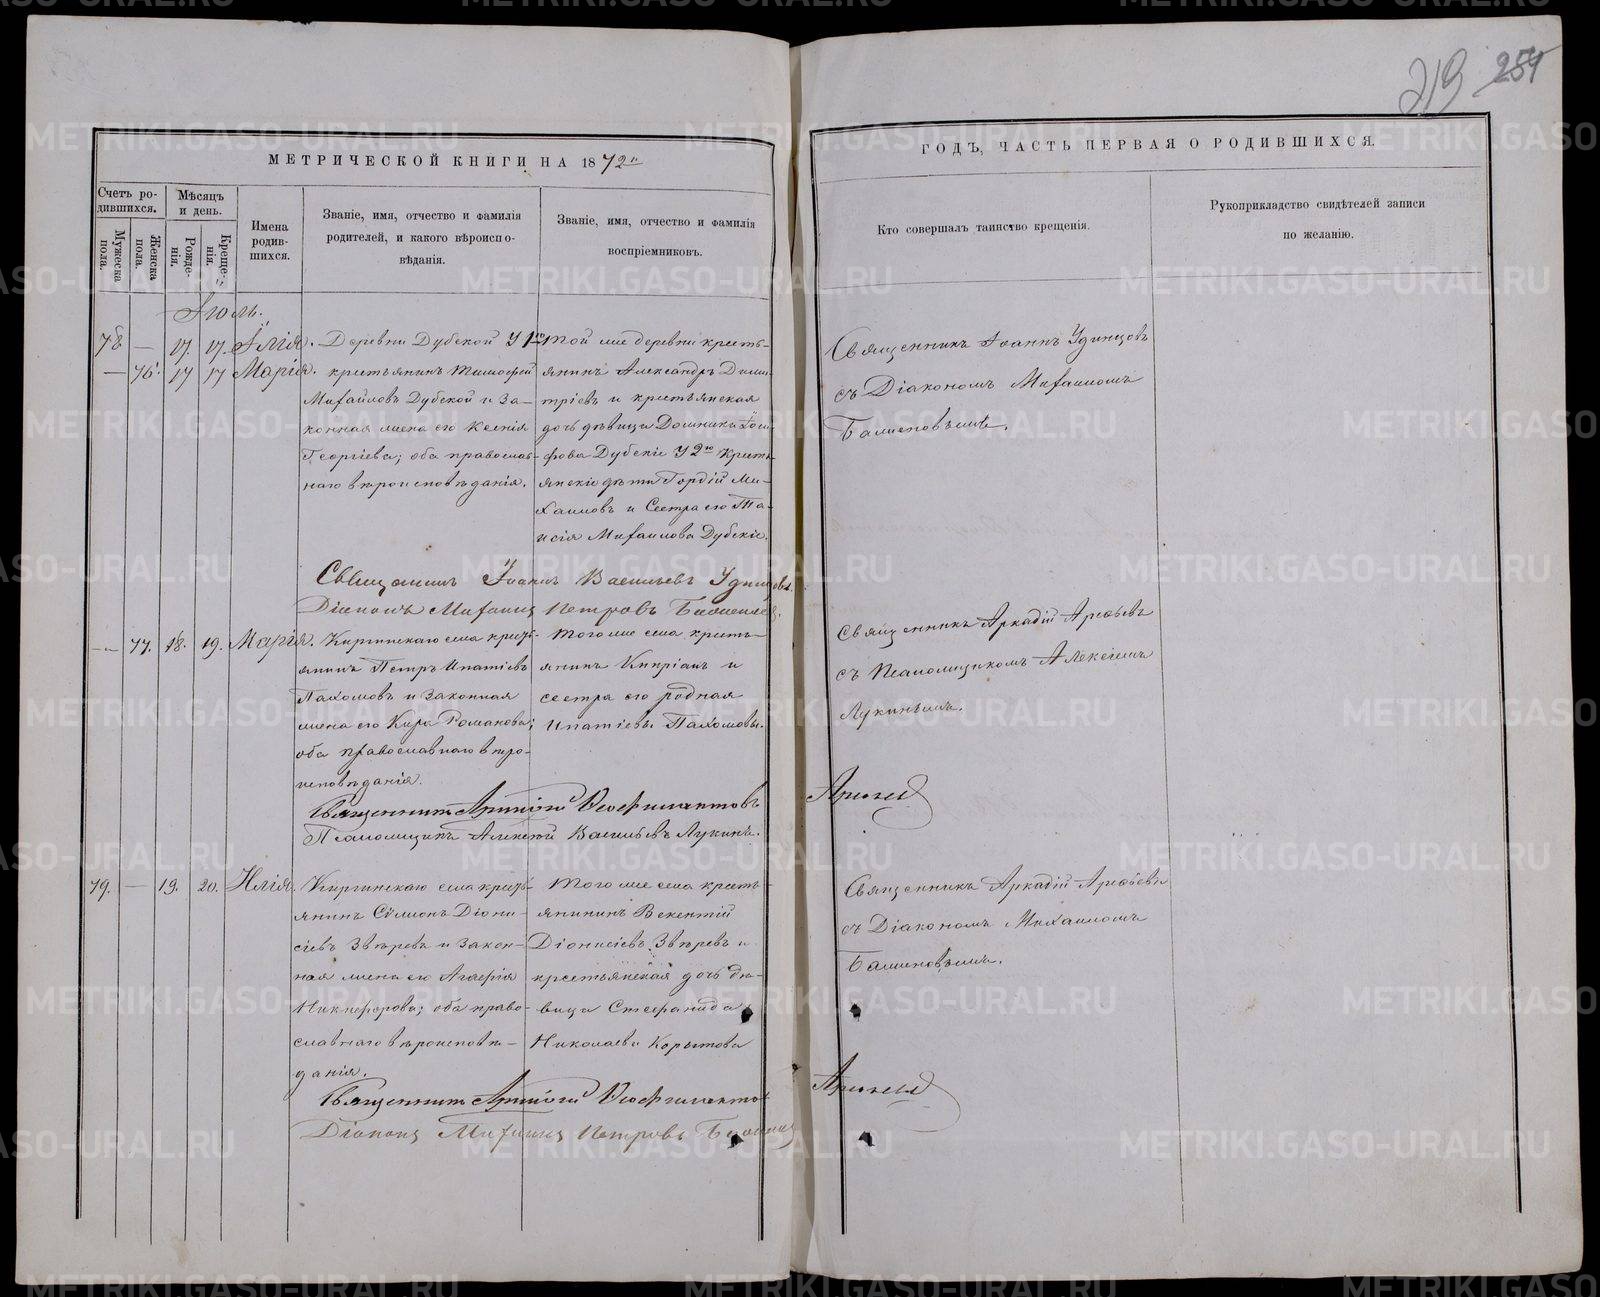 219 254
МЕТРИЧЕСКОЙ КНИГИ НА 1872й
ГОДЪ, ЧАСТЬ ПЕРВАЯ О РОДИВШИХСЯ.
Счетъ ро-
дившихся.
Мужеска
пола.
Женска
пола.
Мѣсяцъ
и день.
Рожде-
нія.
Креще-
нія.
Имена
родив-
шихся.
Званіе, имя, отчество и фамилія
родителей, и какого вѣроиспо-
вѣданія.
Званіе, имя, отчество и фамилія
воспріемниковъ.
Кто совершалъ таинство крещенія.
Рукоприкладство свидѣтелей записи
по желанію.
Іюль.
78. — 17. 17. Илія.
— 76. 17 17 Марія.
Деревни Дубской
крестьянинъ Тимофей
Михайловъ Дубской и за-
конная жена его Ксенія
Георгіева; оба православ-
наго вѣроисповѣданія.
У 1го той же деревни кресть-
янинъ Александръ Дими-
тріевъ и крестьянская
дочь дѣвица Домника Іоси-
фова Дубскіе У 2го кресть-
янскіе дѣти Гордій Ми-
хаиловъ и Сестра его Та-
исія Михаилова Дубскіе.
Священникъ Іоаннъ Удинцовъ
съ Діакономъ Михаиломъ
Священникъ Іоаннъ Васильевъ Удинцовъ.
Діаконъ Михаилъ Петровъ
— 77. 18. 19. Марія.
Киргинскаго села кресть-
янинъ Петръ Ипатіевъ
Пахомовъ и законная
жена его Кира Романова;
оба православнаго вѣро-
исповѣданія.
Того же села кресть-
янинъ Кипріанъ и
сестра его родная
Ипатіевы Пахомовы.
Священникъ Аркадій Арефьевъ
съ Псаломщикомъ Алексіемъ
Лукинымъ.
Священникъ Аркадій Феофилактовъ
Арефьевъ
Псаломщикъ Алексѣй Васильевъ Лукинъ.
79. — 19. 20. Илія.
Киргинскаго села кресть-
янинъ Сѵмеонъ Діони-
сіевъ Звѣревъ и закон-
ная жена его Агафія
Никифорова; оба право-
славнаго вѣроисповѣ-
данія.
Того же села кресть-
янинъ Викентій
Діонисіевъ Звѣревъ и
крестьянская дочь дѣ-
вица Стефанида
Николаева Корытова
Священникъ Аркадій Арефьевъ
съ Діакономъ Михаиломъ
Священникъ Аркадій Феофилактовъ
Арефьевъ
Діаконъ Михаилъ Петровъ
METRIKI.GASO-URAL.RU